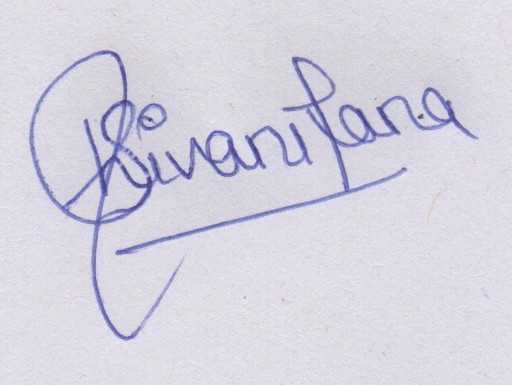 Shivani Rana